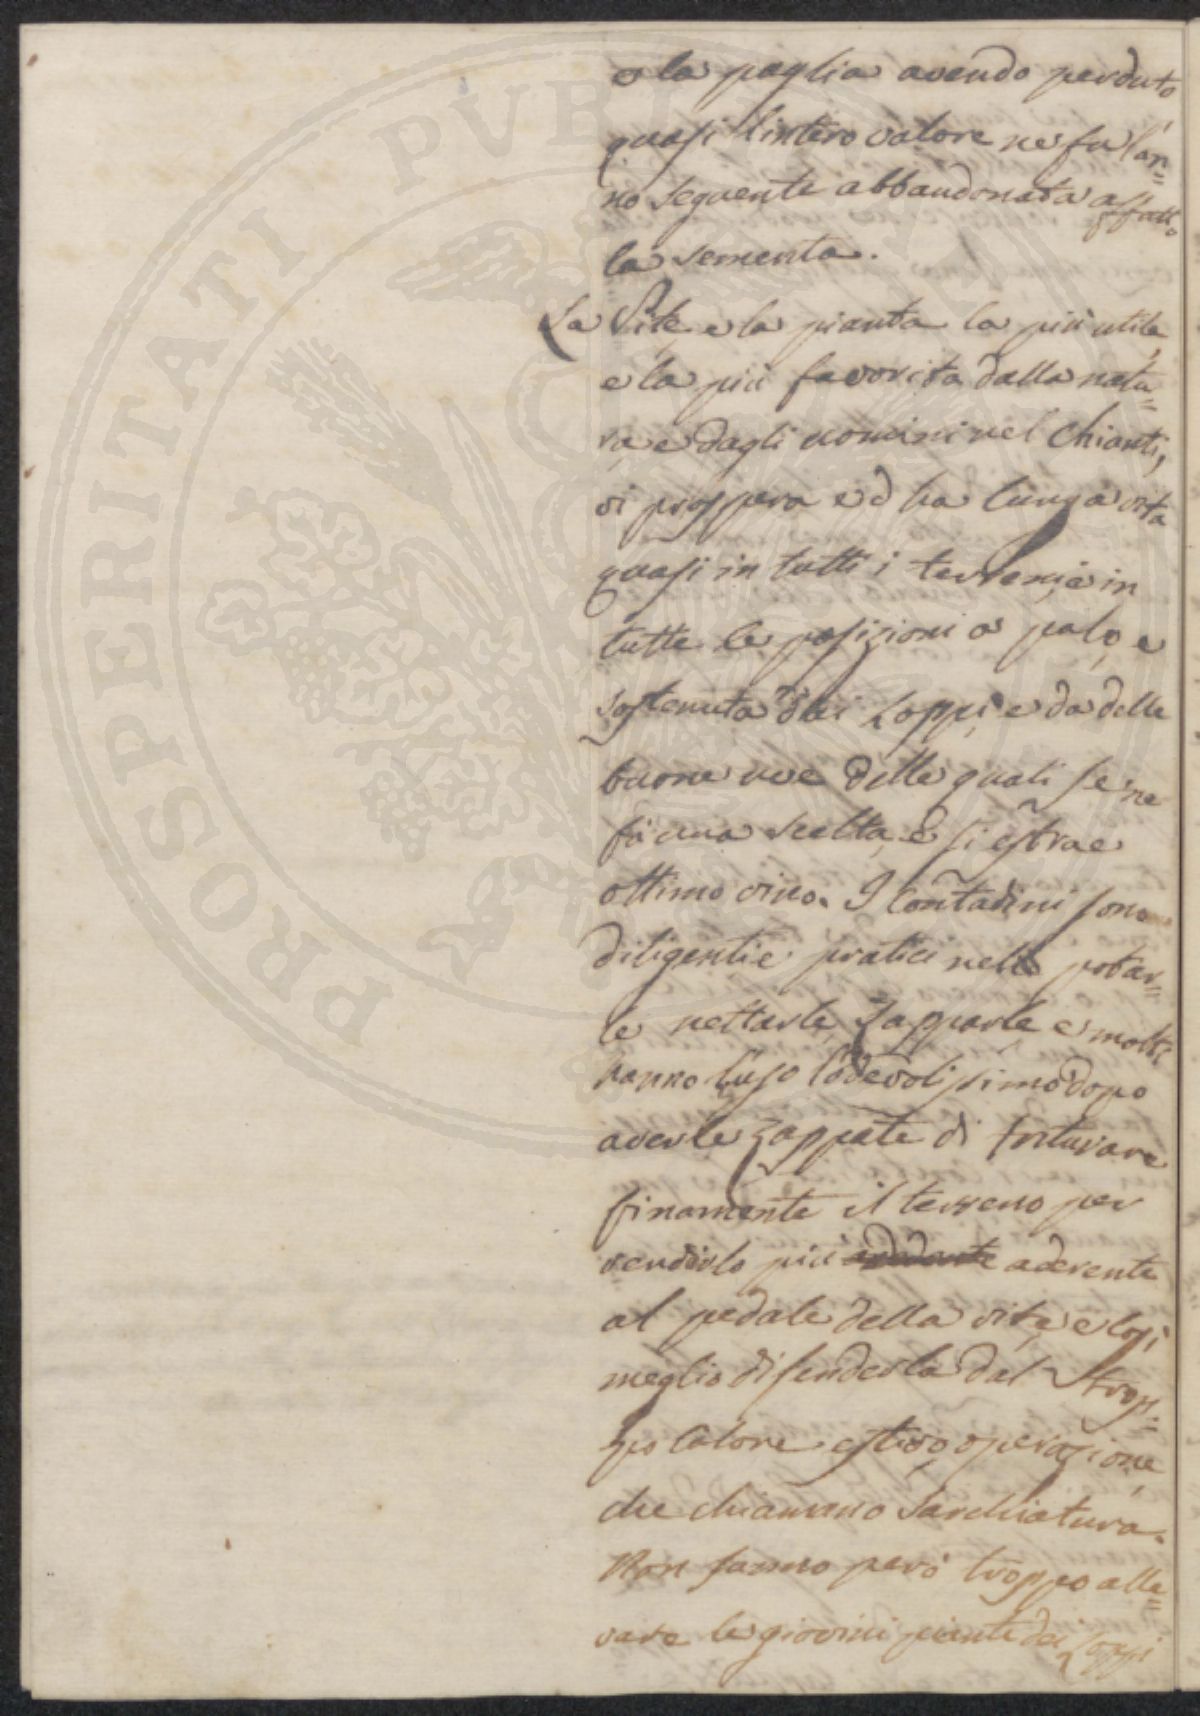 e la paglia avendo perduto
quasi l'intero valore ne fu l'an=
no seguente abbandonata affatto
la sementa.
La Vite, e la pianta la più utile,
e la più favorita dalla natu=
ra e dagli uomini nel Chianti,
vi prospera ed ha lunga vita
quasi in tutti i terreni, e in
tutte le posizioni a palo, e
sostenuta dai Loppi, e da delle
buone uve delle quali se ne
fà una scelta, e si estrae
ottimo vino. I Contadini sono
diligenti e pratici nelle potar=
le nettarle, Zapparle e molti
hanno l'uso lodevolissimo dopo
averle Zappate di triturare
finamente il terreno per
renderlo più aderente
al pedale della vite, e così
meglio difenderla dal trop=
po Calore estivo, operazione,
che chiamano Sarchiatura.
Non sanno però troppo alle=
vare le giovini piante dei Loppi
PROSPERITATI PUBLICAE